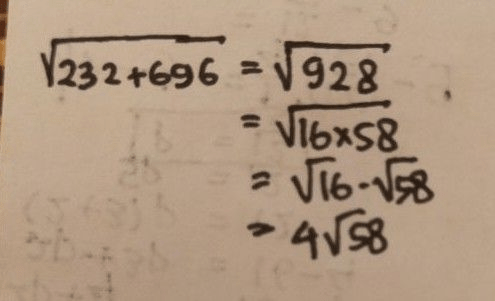 √232+696 = √928
= √16×58
= √16 - √58
= 4√58